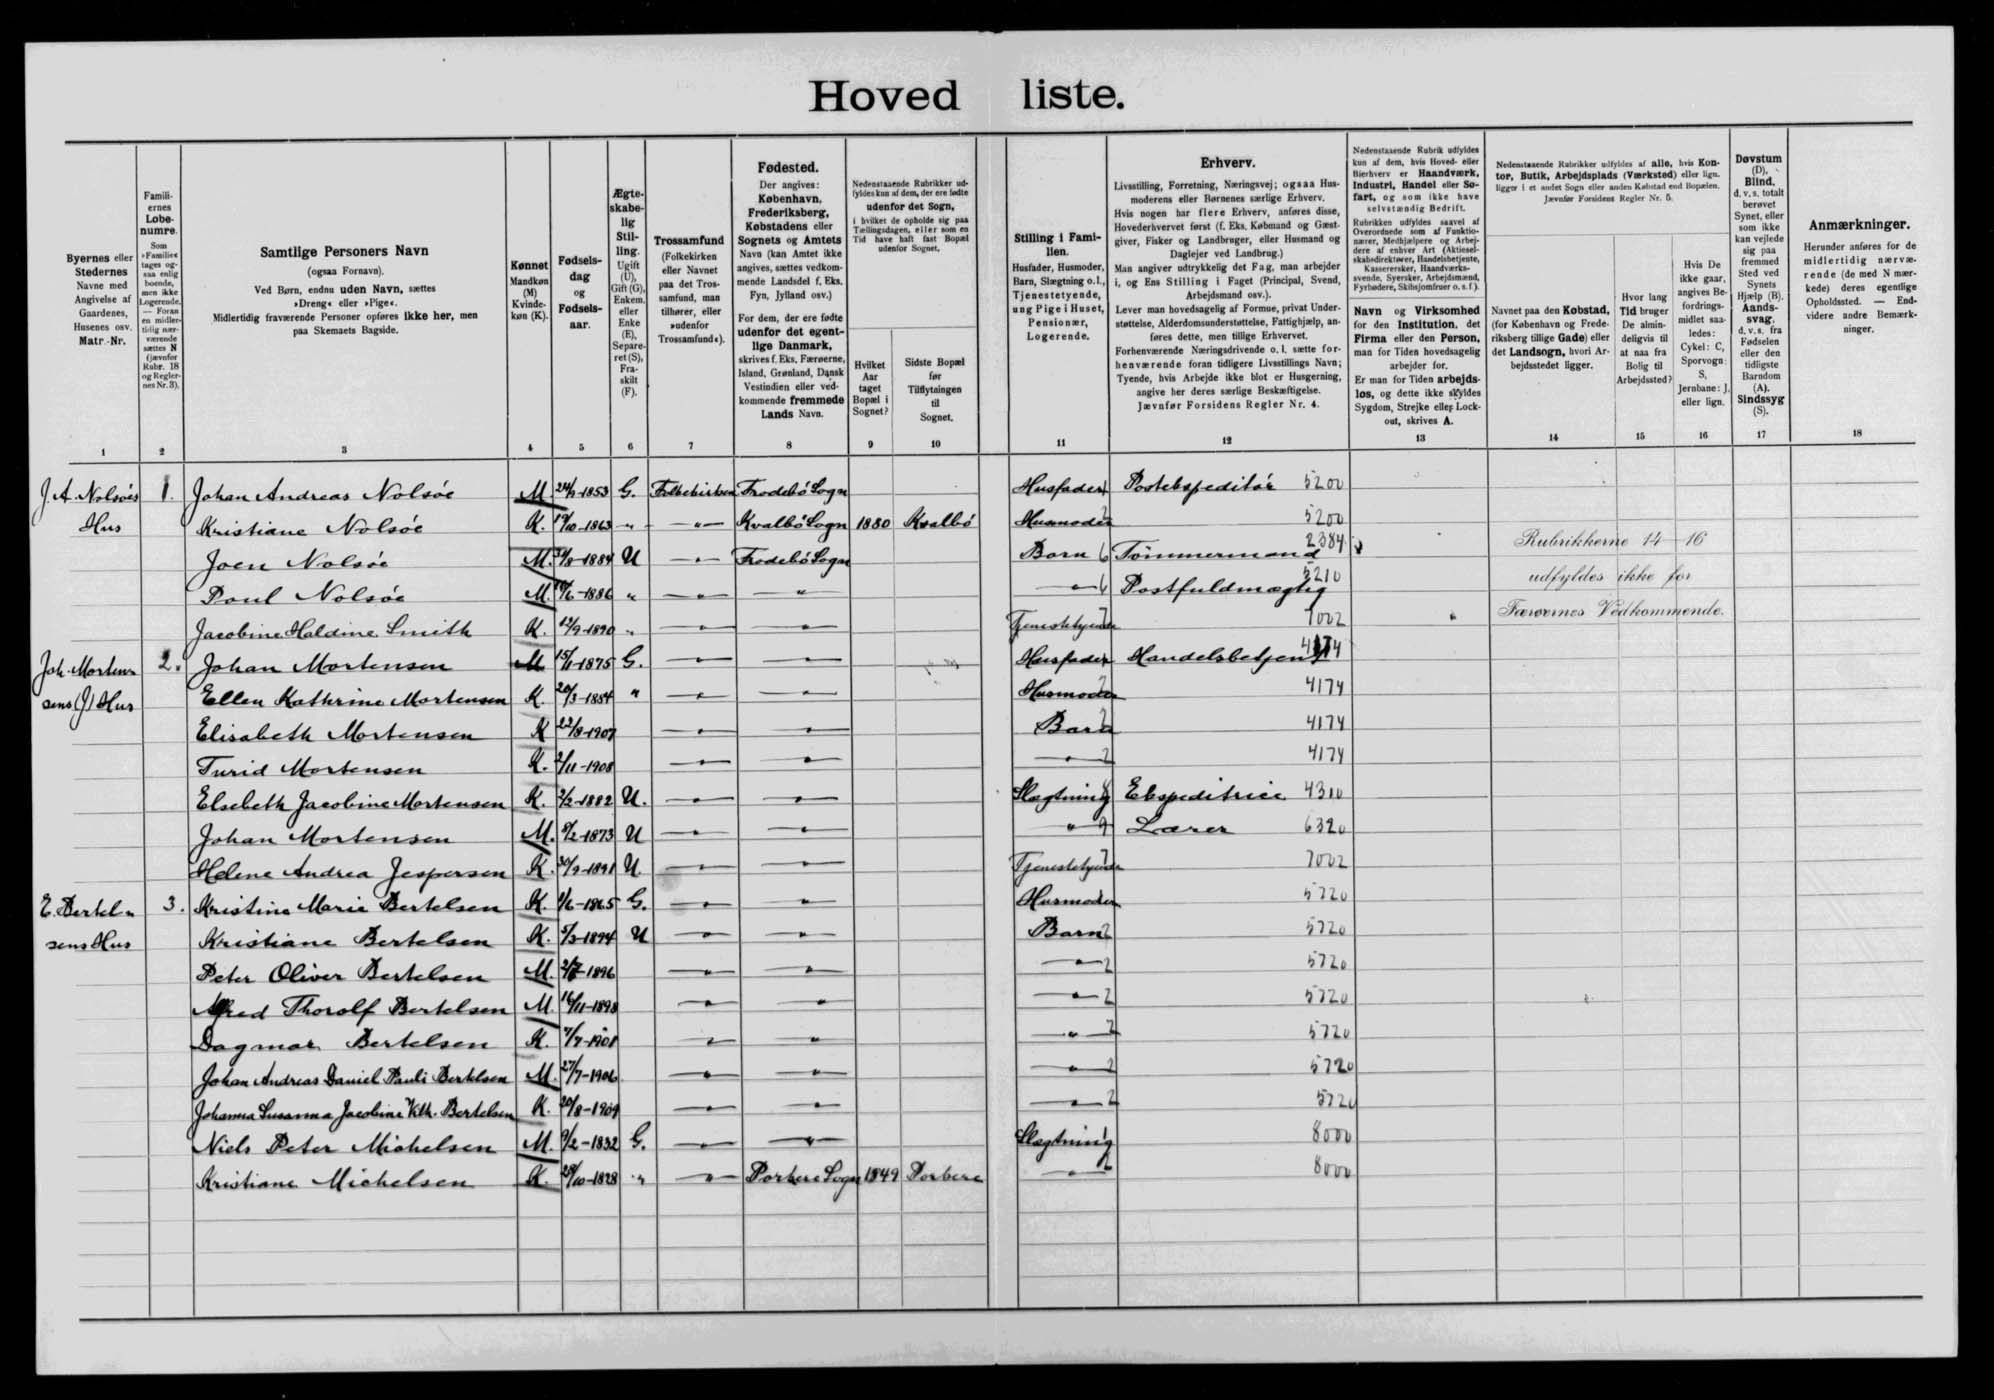 Hoved liste.
Byernes eller
Stedernes
Navne med
Angivelse af
Gaardenes,
Husenes osv.
Matr.-Nr.
1
Famili-
ernes
Løbe-
numre.
Som
»Familie«
tages og-
saa enlig
boende,
men ikke
Logerende.
— Foran
en midler-
tidig nær-
værende
sættes N
(jævnfør
Rubr. 18
og Regler-
nes Nr. 3).
2
Samtlige Personers Navn
(ogsaa Fornavn).
Ved Børn, endnu uden Navn, sættes
»Dreng« eller »Pige«.
Midlertidig fraværende Personer opføres ikke her, men
paa Skemaets Bagside.
3
Kønnet
Mandkøn
(M)
Kvinde-
køn (K).
4
Fødsels-
dag
og
Fødsels-
aar.
5
Ægte-
skabe-
lig
Stil-
ling.
Ugift
(U),
Gift (G),
Enkem.
eller
Enke
(E),
Separe-
ret (S),
Fra-
skilt
(F).
6
Trossamfund
(Folkekirken
eller Navnet
paa det Tros-
samfund, man
tilhører, eller
»udenfor
Trossamfund«).
7
Fødested.
Der angives:
København,
Frederiksberg,
Købstadens eller
Sognets og Amtets
Navn (kan Amtet ikke
angives, sættes vedkom-
mende Landsdel f. Eks.
Fyn, Jylland osv.)
For dem, der ere fødte
udenfor det egent-
lige Danmark,
skrives f. Eks. Færøerne,
Island, Grønland, Dansk
Vestindien eller ved-
kommende fremmede
Lands Navn.
8
Nedenstaaende Rubrikker ud-
fyldes kun af dem, der ere fødte
udenfor det Sogn,
i hvilket de opholde sig paa
Tællingsdagen, eller som en
Tid have haft fast Bopæl
udenfor Sognet.
Hvilket
Aar
taget
Bopæl i
Sognet?
9
Sidste Bopæl
før
Tilflytningen
til
Sognet.
10
Stilling i Fami-
lien.
Husfader, Husmoder,
Barn, Slægtning o. l.,
Tjenestetyende,
ung Pige i Huset,
Pensionær,
Logerende.
11
Erhverv.
Livsstilling, Forretning, Næringsvej; ogsaa Hus-
moderens eller Børnenes særlige Erhverv.
Hvis nogen har flere Erhverv, anføres disse,
Hovederhvervet først (f. Eks. Købmand og Gæst-
giver, Fisker og Landbruger, eller Husmand og
Daglejer ved Landbrug.)
Man angiver udtrykkelig det Fag, man arbejder
i, og Ens Stilling i Faget (Principal, Svend,
Arbejdsmand osv.).
Lever man hovedsagelig af Formue, privat Under-
støttelse, Alderdomsunderstøttelse, Fattighjælp, an-
føres dette, men tillige Erhvervet.
Forhenværende Næringsdrivende o. l. sætte for-
henværende foran tidligere Livsstillings Navn;
Tyende, hvis Arbejde ikke blot er Husgerning,
angive her deres særlige Beskæftigelse.
Jævnfør Forsidens Regler Nr. 4.
12
Nedenstaaende Rubrik udfyldes
kun af dem, hvis Hoved- eller
Bierhverv er Haandværk,
Industri, Handel eller Sø-
fart, og som ikke have
selvstændig Bedrift.
Rubrikken udfyldes saavel af
Overordnede som af Funktio-
nærer, Medhjælpere og Arbej-
dere af enhver Art (Aktiesel-
skabsdirektører, Handelsbetjente,
Kasserersker, Haandværks-
svende, Syersker, Arbejdsmænd,
Fyrbødere, Skibsjomfruer o. s. f.).
Navn og Virksomhed
for den Institution, det
Firma eller den Person,
man for Tiden hovedsagelig
arbejder for.
Er man for Tiden arbejds-
løs, og dette ikke skyldes
Sygdom, Strejke eller Lock-
out, skrives A.
13
Nedenstaaende Rubrikker udfyldes af alle, hvis Kon-
tor, Butik, Arbejdsplads (Værksted) eller lign.
ligger i et andet Sogn eller anden Købstad end Bopælen.
Jævnfør Forsidens Regler Nr. 5.
Navnet paa den Købstad,
(for København og Frede-
riksberg tillige Gade) eller
det Landsogn, hvori Ar-
bejdsstedet ligger.
14
Hvor lang
Tid bruger
De almin-
deligvis til
at naa fra
Bolig til
Arbejdssted?
15
Hvis De
ikke gaar,
angives Be-
fordrings-
midlet saa-
ledes:
Cykel: C,
Sporvogn:
S,
Jernbane: J,
eller lign.
16
Døvstum
(D),
Blind,
d. v. s. totalt
berøvet
Synet, eller
som ikke
kan vejlede
sig paa
fremmed
Sted ved
Synets
Hjælp (B).
Aands-
svag,
d. v. s. fra
Fødselen
eller den
tidligste
Barndom
(A).
Sindssyg
(S).
17
Anmærkninger.
Herunder anføres for de
midlertidig nærvæ-
rende (de med N mær-
kede) deres egentlige
Opholdssted. — End-
videre andre Bemærk-
ninger.
18
J. A. Nolsöes 1. Johan Andreas Nolsöe M. 24/9-1853 G. Folkekirken Frodebö Sogn Husfader Postekspeditör 5200
Hus Kristiane Nolsöe K. 19/10-1863 " " Kvalbö Sogn 1880 Kvalbö Husmoder 2 5200
Joen Nolsöe M. /8-1884 U " Frodebö Sogn Barn 6 Tömmermand 2384
Poul Nolsöe M. /6-1886 " " " " 6 Postfuldmægtig 5210
Jacobine Haldine Smith K. 12/9-1890 " " " Tjenestetyende 7 7002
Rubrikkerne 14-16
udfyldes ikke for
Færøernes Vedkommende.
Joh. Morten- 2. Johan Mortensen M 15/1-1875 G. " " Husfader Handelsbetjent 4174
sens (J) Hus Ellen Kathrine Mortensen K. 20/3-1884 " " " Husmoder 2 4174
Elisabeth Mortensen K 22/8-1907 " " Barn 2 4174
Turid Mortensen K. 2/11-1908 " " " 2 4174
Elsebeth Jacobine Mortensen K. 2/2-1882 U. " " Slægtning Ekspeditrice 4310
Johan Mortensen M. /2-1873 U " " " 9 Lærer 6320
Helene Andrea Jespersen K. 30/9-1891 U. " " Tjenestetyende 7 7002
E. Bertel- 3. Kristine Marie Bertelsen K. 1/6-1865 G. " " Husmoder 5720
sens Hus Kristiane Bertelsen K. 5/3-1894 U " " Barn 2 5720
Peter Oliver Bertelsen M. -1896 " " " 2 5720
Alfred Thorolf Bertelsen M. 16/11-1898 " " " 2 5720
Dagmar Bertelsen K. 7/7-1901 " " " 2 5720
Johan Andreas Daniel Pauli Bertelsen M. 27/7-1906 " " " 2 5720
Johanna Susanna Jacobine Kth. Bertelsen K. 20/8-1909 " " " 2 5720
Niels Peter Michelsen M. 9/2-1832 G. " " Slægtning 8000
Kristiane Michelsen K. 28/10-1828 " " Porkere Sogn 1849 Porkere " 2 8000